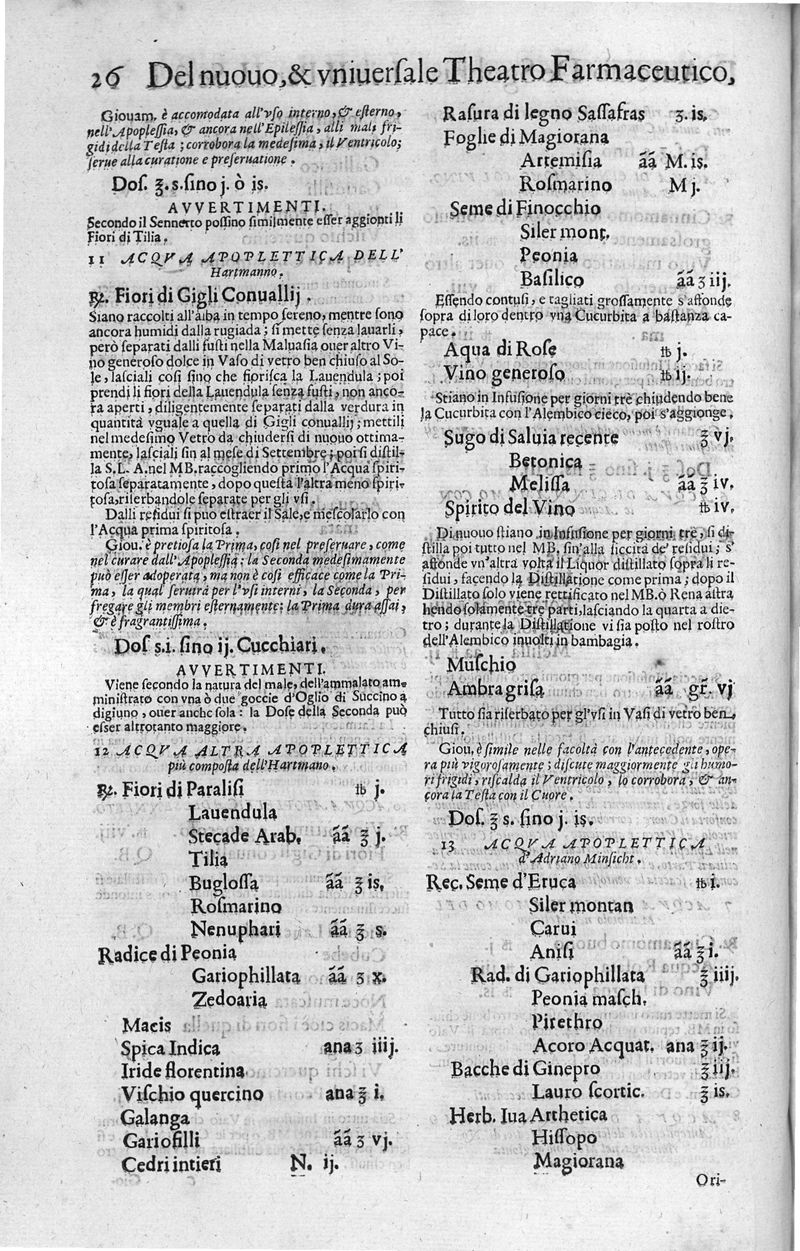 26 Del nuouo, & vniuersale Theatro Farmaceutico,
Giouam. è accomodata all'vso interno, & esterno,
nell'Apoplessia, & ancora nell'Epilessia, alli mali fri-
gidi della Testa; corrobora la medesima, il Ventricolo;
serue alla curatione e preseruatione.
Dos. ℥. s. sino j. ò is.
AVVERTIMENTI.
Secondo il Sennerto possino similmente esser aggionti li
Fiori di Tilia.
11 ACQVA APOPLETTICA DELL'
Hartmanno.
℞. Fiori di Gigli Conuallij.
Siano raccolti all'alba in tempo sereno, mentre sono
ancora humidi dalla rugiada; si mette senza lauarli,
però separati dalli fusti nella Maluasia ouer altro Vi-
no generoso dolce in Vaso di vetro ben chiuso al So-
le, lasciali così sino che fiorisca la Lauendula; poi
prendi li fiori della Lauendula senza fusti, non anco-
ra aperti, diligentemente separati dalla verdura in
quantità vguale a quella di Gigli conuallij; mettili
nel medesimo Vetro da chiudersi di nuouo ottima-
mente, lasciali sin al mese di Settembre; poi si distil-
la S. L. A. nel MB. raccogliendo primo l'Acqua spiri-
tosa separatamente, dopo questa l'altra meno spiri-
tosa, riserbandole separate per gli vsi.
Dalli residui si può estraer il Sale, e mescolarlo con
l'Acqua prima spiritosa.
Giou. è pretiosa la Prima, così nel preseruare, come
nel curare dall'Apoplessia; la Seconda medesimamente
può esser adoperata, ma non è così efficace come la Pri-
ma, la qual seruirà per l'vsi interni, la Seconda, per
fregare gli membri esternamente: la Prima dura assai,
& è fragrantissima.
Dos s.i. sino ij. Cucchiari.
AVVERTIMENTI.
Viene secondo la natura del male, dell'ammalato am-
ministrato con vna ò due goccie d'Oglio di Succino a
digiuno, ouer anche sola: la Dose della Seconda può
esser altrotanto maggiore.
12 ACQVA ALTRA APOPLETTICA
più composta dell'Hartmano.
℞. Fiori di Paralisi ℔ j.
Lauendula
Stecade Arab. ãã ℥ j.
Tilia
Buglossa ãã ℥ is.
Rosmarino
Nenuphari ãã ℥ s.
Radice di Peonia
Gariophillata ãã ʒ x.
Zedoaria
Macis
Spica Indica ana ʒ iiij.
Iride florentina
Vischio quercino ana ℥ i.
Galanga
Gariofilli ãã ʒ vj.
Cedri intieri N. ij.
Rasura di legno Sassafras ʒ. is.
Foglie di Magiorana
Artemisia ãã M. is.
Rosmarino M j.
Seme di Finocchio
Siler mont.
Peonia
Basilico ãã ʒ iij.
Essendo contusi, e tagliati grossamente s'affonde
sopra di loro dentro vna Cucurbita a bastanza ca-
pace.
Aqua di Rose ℔ j.
Vino generoso ℔ ij.
Stiano in Infusione per giorni trè chiudendo bene
la Cucurbita con l'Alembico cieco, poi s'aggionge.
Sugo di Saluia recente ℥ vj.
Betonica
Melissa ãã ℥ iv.
Spirito del Vino ℔ iv.
Di nuouo stiano in Infusione per giorni trè, si di-
stilla poi tutto nel MB. sin'alla siccità de' residui; s'
affonde vn'altra volta il Liquor distillato sopra li re-
sidui, facendo la Distillatione come prima; dopo il
Distillato solo viene rettificato nel MB. ò Rena astra
hendo solamente trè parti, lasciando la quarta a die-
tro; durante la Distillatione vi sia posto nel rostro
dell'Alembico inuolti in bambagia.
Muschio
Ambra grisa ãã gr. vj
Tutto sia riserbato per gl'vsi in Vasi di vetro ben
chiusi.
Giou. è simile nelle facoltà con l'antecedente, ope-
ra più vigorosamente; discute maggiormente gli humo-
ri frigidi, riscalda il Ventricolo, lo corrobora, & an-
cora la Testa con il Cuore.
Dos. ℥ s. sino j. is.
13 ACQVA APOPLETTICA
d'Adriano Minsicht.
Rec. Seme d'Eruca ℔ i.
Siler montan
Carui
Anisi ãã ℥ i.
Rad. di Gariophillata ℥ iiij.
Peonia masch.
Pirethro
Acoro Acquat. ana ℥ ij.
Bacche di Ginepro ℥ iij.
Lauro scortic. ℥ is.
Herb. Iua Arthetica
Hissopo
Magiorana
Ori-